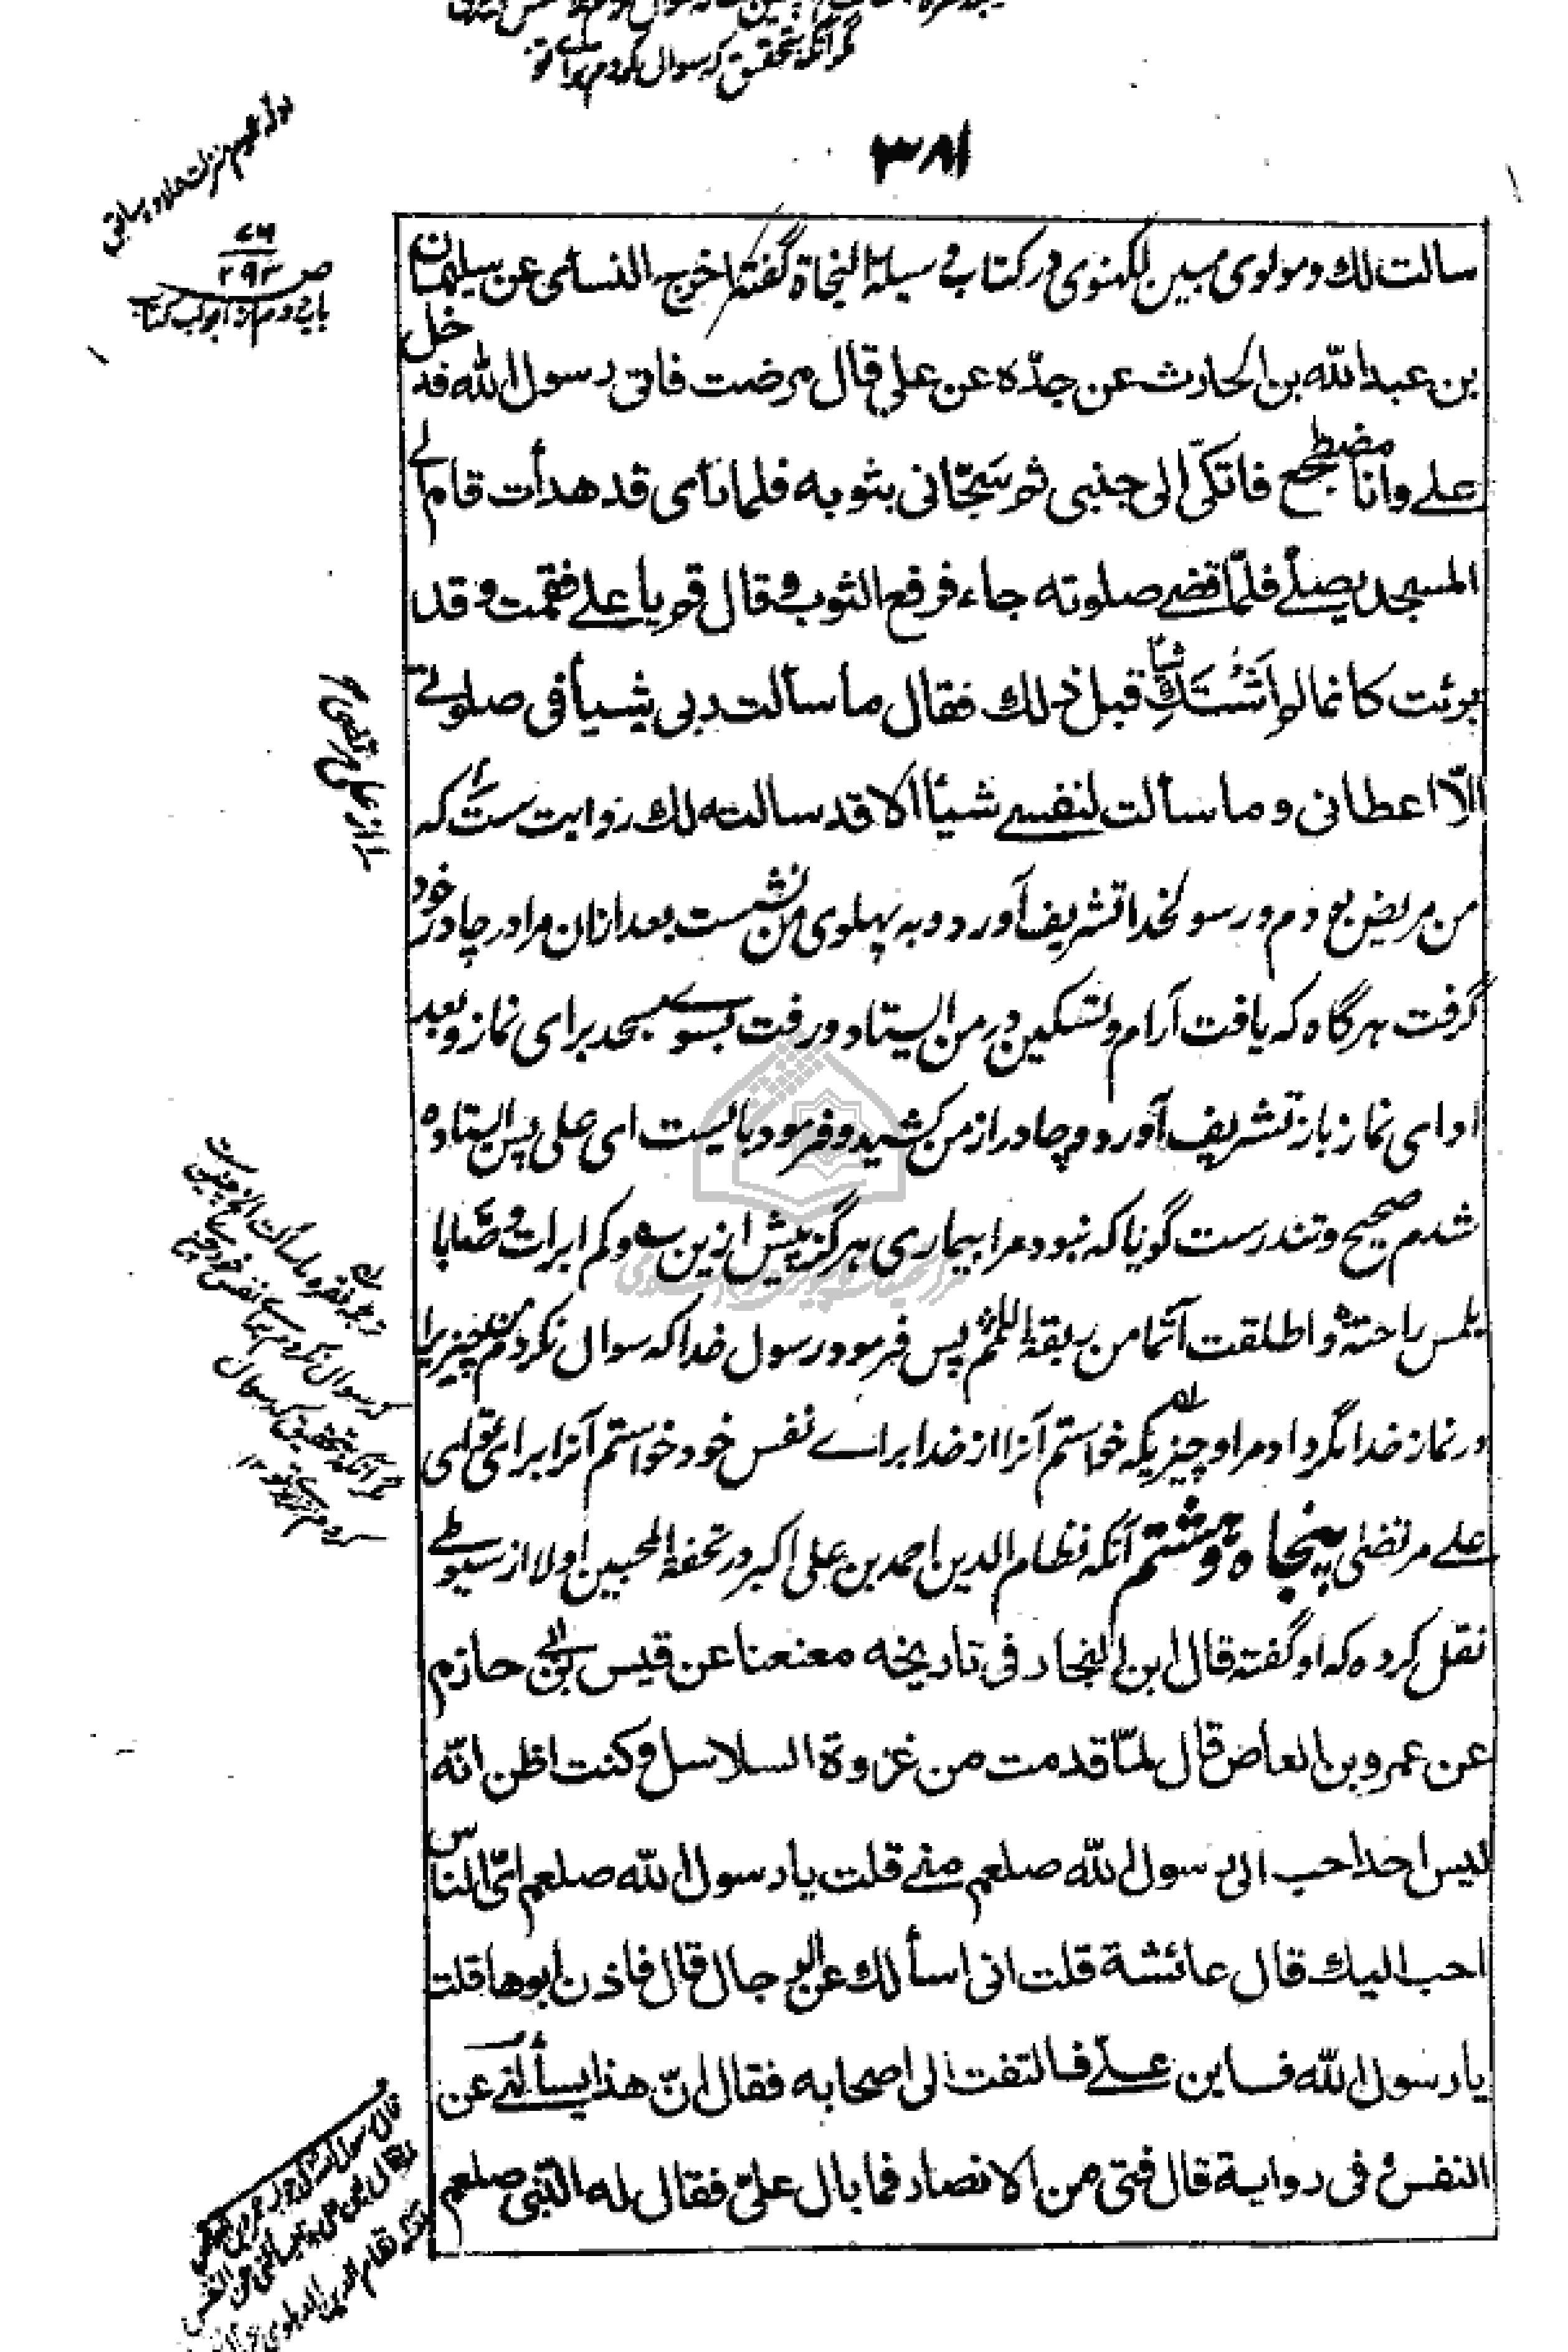 گر آنکه بتحقیق که سوال کردم برای تو
۳۸۱
سالت لك و مولوی مبین لکهنوی در کتاب وسیلة النجاة گفته اخرج النسائی عن سلیمان
بن عبد الله بن الحارث عن جدّه عن علی قال مرضت فاتی رسول الله فدخل
علے وانا مضطجع فاتکی الی جنبی ثم سجّانی بثوبه فلما رأی قد هدأت قام الے
المسجد یصلے فلمّا قضے صلوته جاء فرفع الثوب و قال قم یا علے فقمت وقد
برئت کانما لم اَشتَكِ شیأ قبل ذلك فقال ما سألت ربی شیأ فی صلوتے
الّا اعطانی و ما سألت لنفسے شیأ الا قد سالته لك روایت ست که
من مریض بودم و رسولخدا تشریف آورد و به پهلوی من نشست بعد ازان مرا در چادر خود
گرفت هرگاه که یافت آرام و تسکین در من ایستاد و رفت بسوے مسجد برای نماز و بعد
ادای نماز باز تشریف آورد و چادر از من کشید و فرمود بایست ای علی پس ایستاده
شدم صحیح و تندرست گویا که نبود مرا بیماری هرگز پیش ازین سه وکم ابرات وصبا با
للمس راحته واطلقت آثما من ربقة اللمم پس فرمود رسول خدا که سوال نکردم من چیزیرا
در نماز خدا مگر داد مرا و چیزیکه خواستم آنرا از خدا براے نفس خود خواستم آنرا برای تو ای
علے مرتضی پنجاه و هشتم آنکه نظام الدین احمد بن علی اکبر در تحفة المحبین اولا از سیوطے
نقل کرده که او گفته قال ابن النجار فی تاریخه معنعنا عن قیس بن ابی حازم
عن عمرو بن العاص قال لمّا قدمت من غزوة السلاسل وکنت اظن انّه
لیس احد احب الی رسول الله صلعم منے قلت یا رسول الله صلعم ایّ الناس
احب الیك قال عائشة قلت انی اسألك عن الرجال قال فاذن ابوها قلت
یا رسول الله فاین علیّ فالتفت الی اصحابه فقال انّ هذا یسألنے عن
النفس و فی روایة قال فتی من الانصار فما بال علیّ فقال له النّبی صلعم
ص ۲۹۳